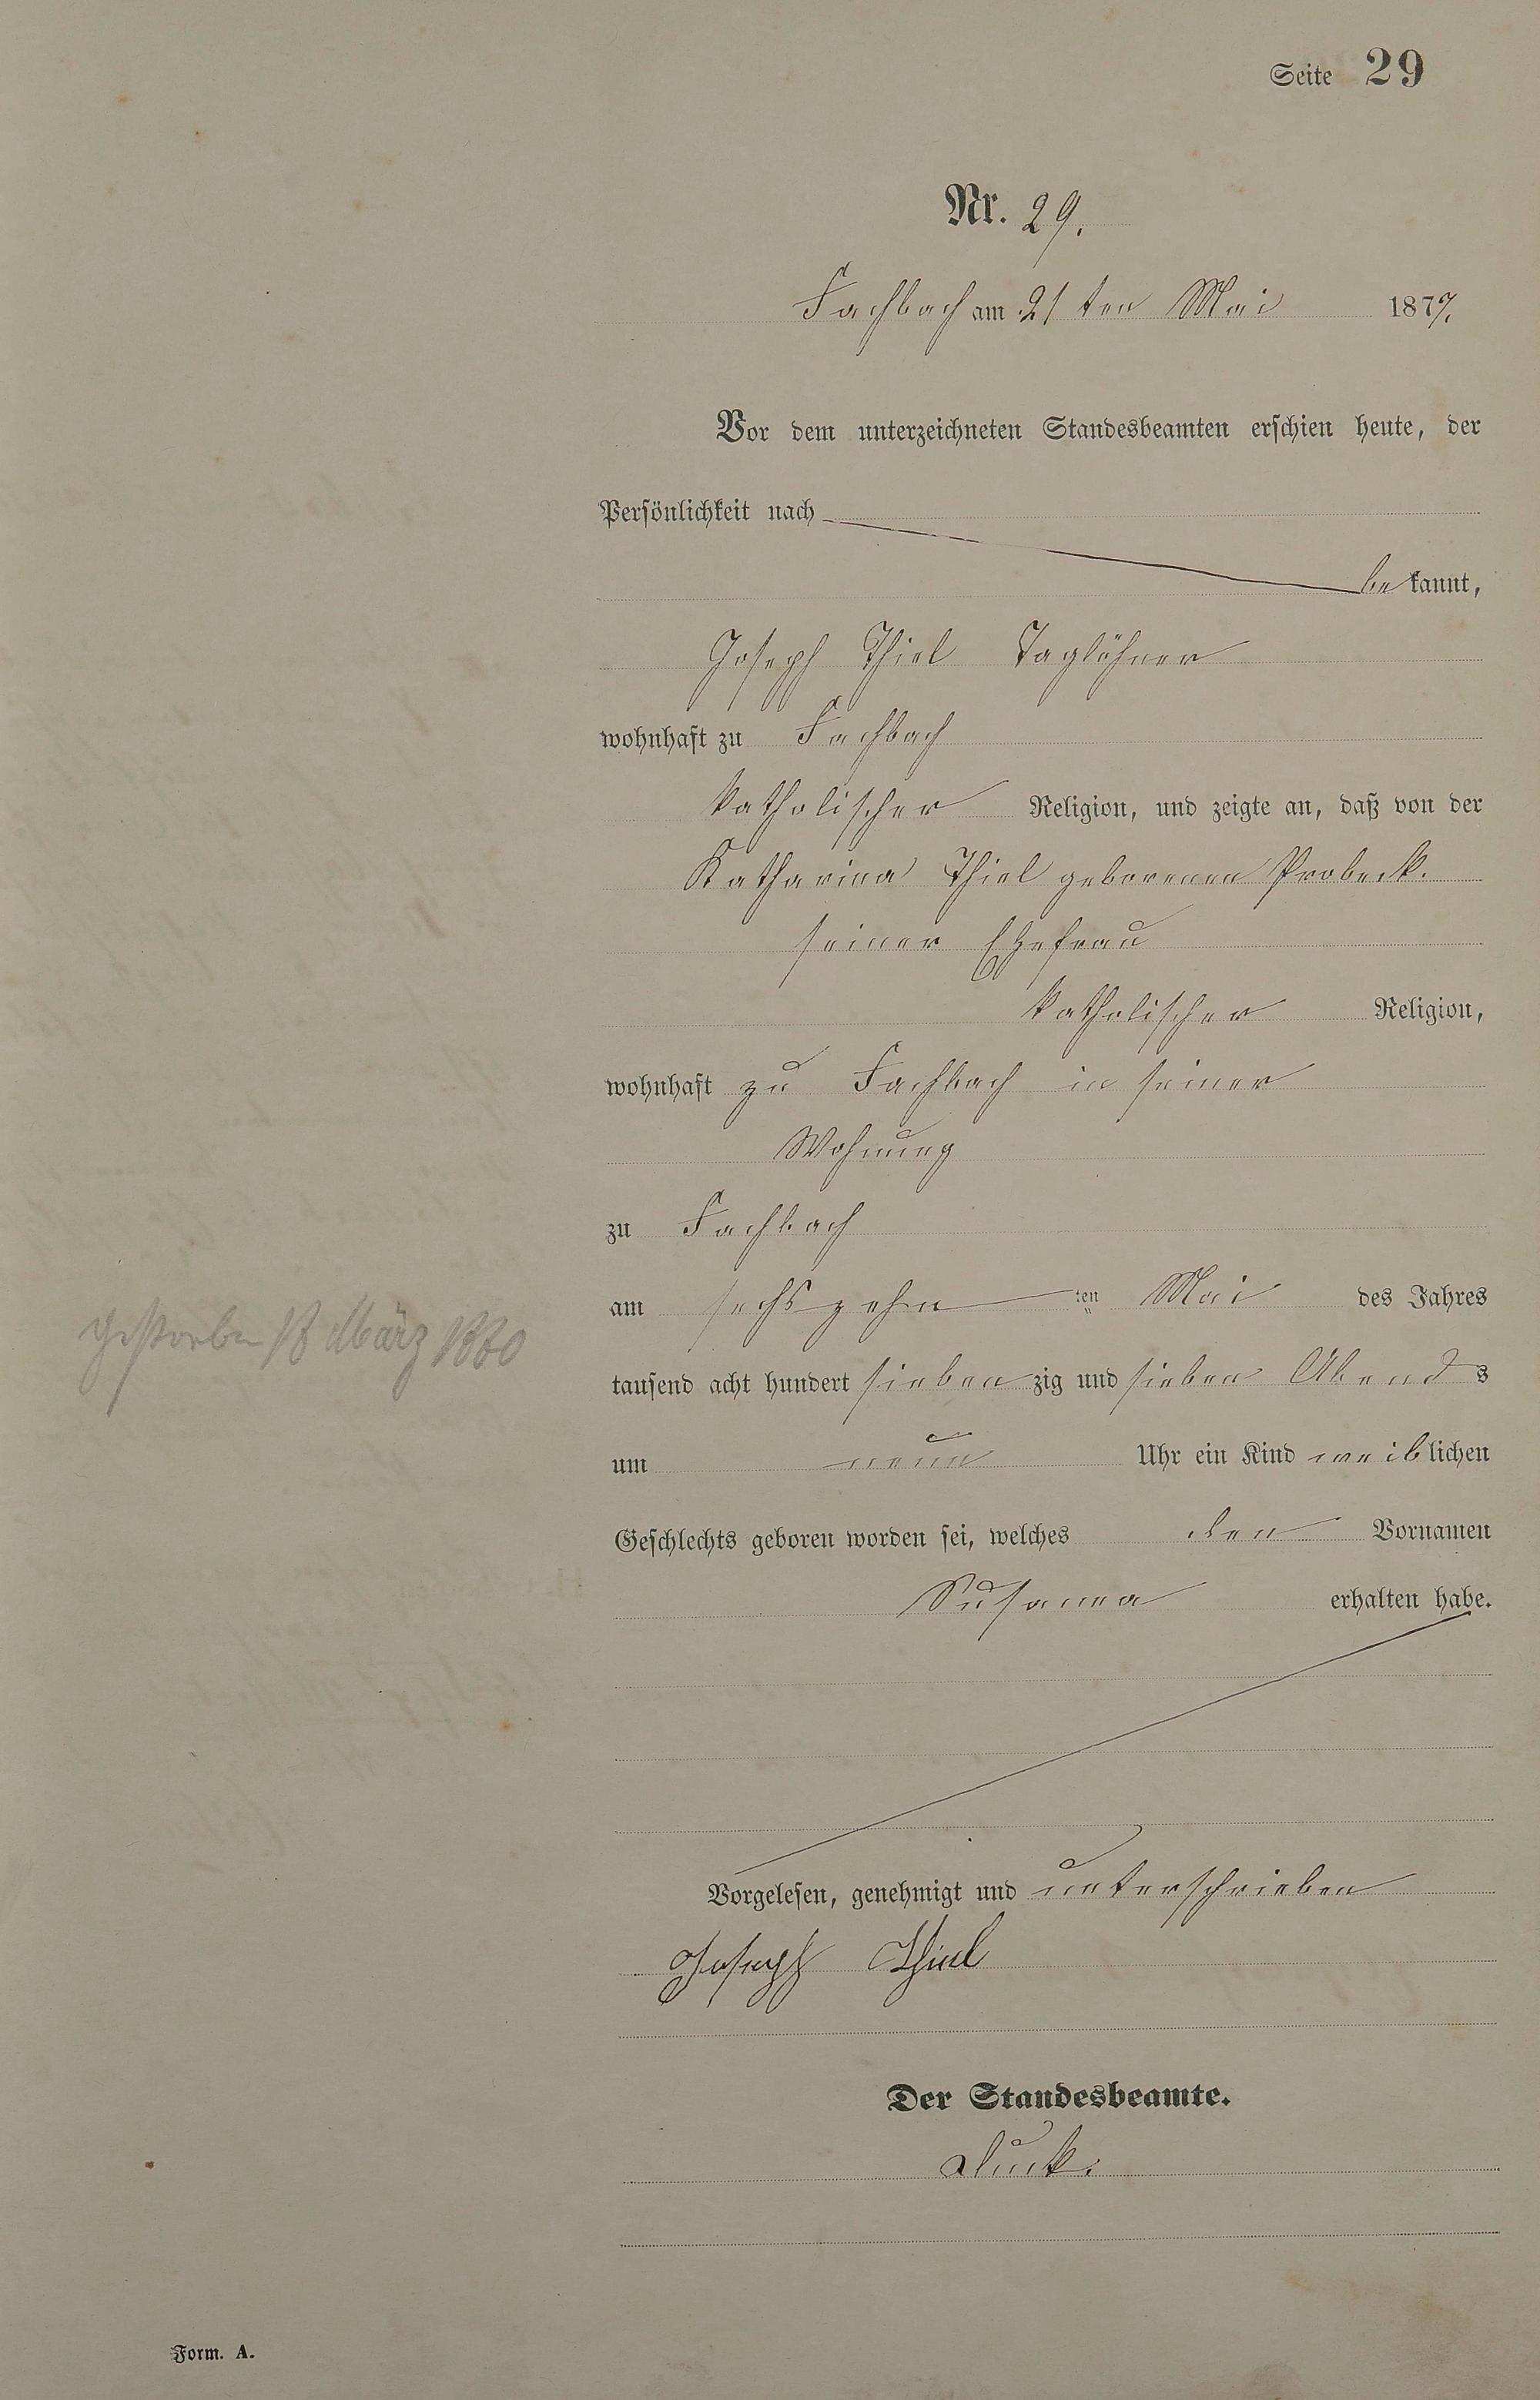 Seite 29
Nr. 29.
Fachbach am 21ten Mai 1877.
Vor dem unterzeichneten Standesbeamten erschien heute, der
Persönlichkeit nach
bekannt,
Joseph Thiel Taglöhner
wohnhaft zu Fachbach
katholischer Religion, und zeigte an, daß von der
Katharina Thiel geborenen Probeck.
seiner Ehefrau
katholischer Religion,
wohnhaft zu Fachbach in seiner
Wohnung
zu Fachbach
am sechszehn ten Mai des Jahres
tausend acht hundert siebenzig und sieben Abends
um neun Uhr ein Kind weiblichen
Geschlechts geboren worden sei, welches den Vornamen
Susanna erhalten habe.
gestorben 18 März 1880
Vorgelesen, genehmigt und unterschrieben
Joseph Thiel
Der Standesbeamte.
Form. A.